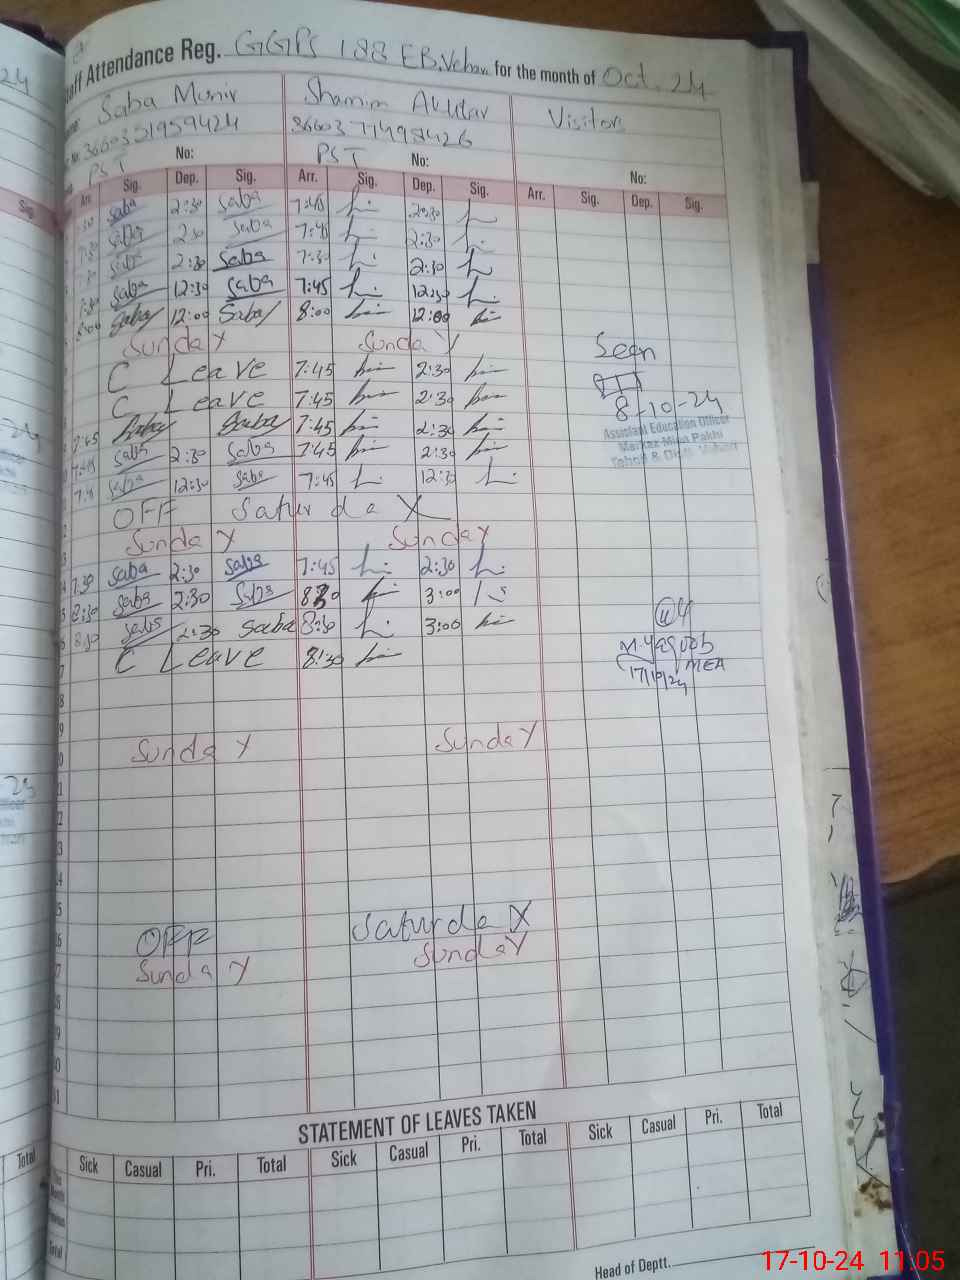 Staff Attendance Reg. GGPS 188 EB, Vehari for the month of Oct, 24
Saba Munir Shamim Akhtar Visitors
3660351959424 3660371498426
PST No: PST No: No:
Arr. Sig. Dep. Sig. Arr. Sig. Dep. Sig. Arr. Sig. Dep. Sig.
7:30 Saba 2:30 Saba 7:45 2:30
7:30 Saba 2:30 Saba 7:45 2:30
7:30 Saba 2:30 Saba 7:30 2:30
7:30 Saba 12:30 Saba 7:45 12:30
8:00 Saba 12:00 Saba 8:00 12:00
Sunday Sunday
C Leave 7:45 2:30 Seen
C Leave 7:45 2:30 8-10-24
7:45 Saba Saba 7:45 2:30 Assistant Education Officer
7:45 Saba 2:30 Saba 7:45 2:30
7:45 Saba 12:30 Saba 7:45 12:30
OFF Saturday
Sunday Sunday
7:30 Saba 2:30 Saba 7:45 2:30
8:30 Saba 2:30 Saba 8:30 3:00
8:30 Saba 2:30 Saba 8:30 3:00
C Leave 8:30 M. Yaqoob
MEA
17/10/24
Sunday Sunday
OFF Saturday
Sunday Sunday
STATEMENT OF LEAVES TAKEN
Sick Casual Pri. Total Sick Casual Pri. Total Sick Casual Pri. Total
Month
Total
Head of Deptt.
17-10-24 11:05